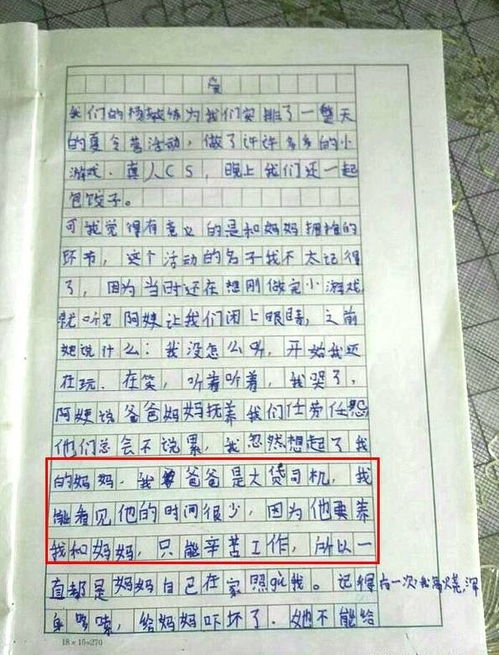 爱
我们的杨教练为我们安排了一整天
的夏令营活动，做了许许多多的小
游戏．真人CS，晚上我们还一起
包饺子。
可我觉得有意义的是和妈妈拥抱的
环节，这个活动的名子我不太记得
了，因为当时还在想刚做完小游戏
就听见阿姨让我们闭上眼睛，之前
她说什么：我没怎么听，开始我还
在玩．在笑，听着听着，我哭了，
阿姨说爸爸妈妈抚养我们任劳任怨
他们总会不说累，我忽然想起了我
的妈妈．我爸爸是大货司机，我
能看见他的时间很少，因为他要养
我和妈妈，只能辛苦工作，所以一
直都是妈妈自己在家照gù我。记得有一次我发烧，浑
身哆嗦，给妈妈吓坏了．她不能给
18×15=270